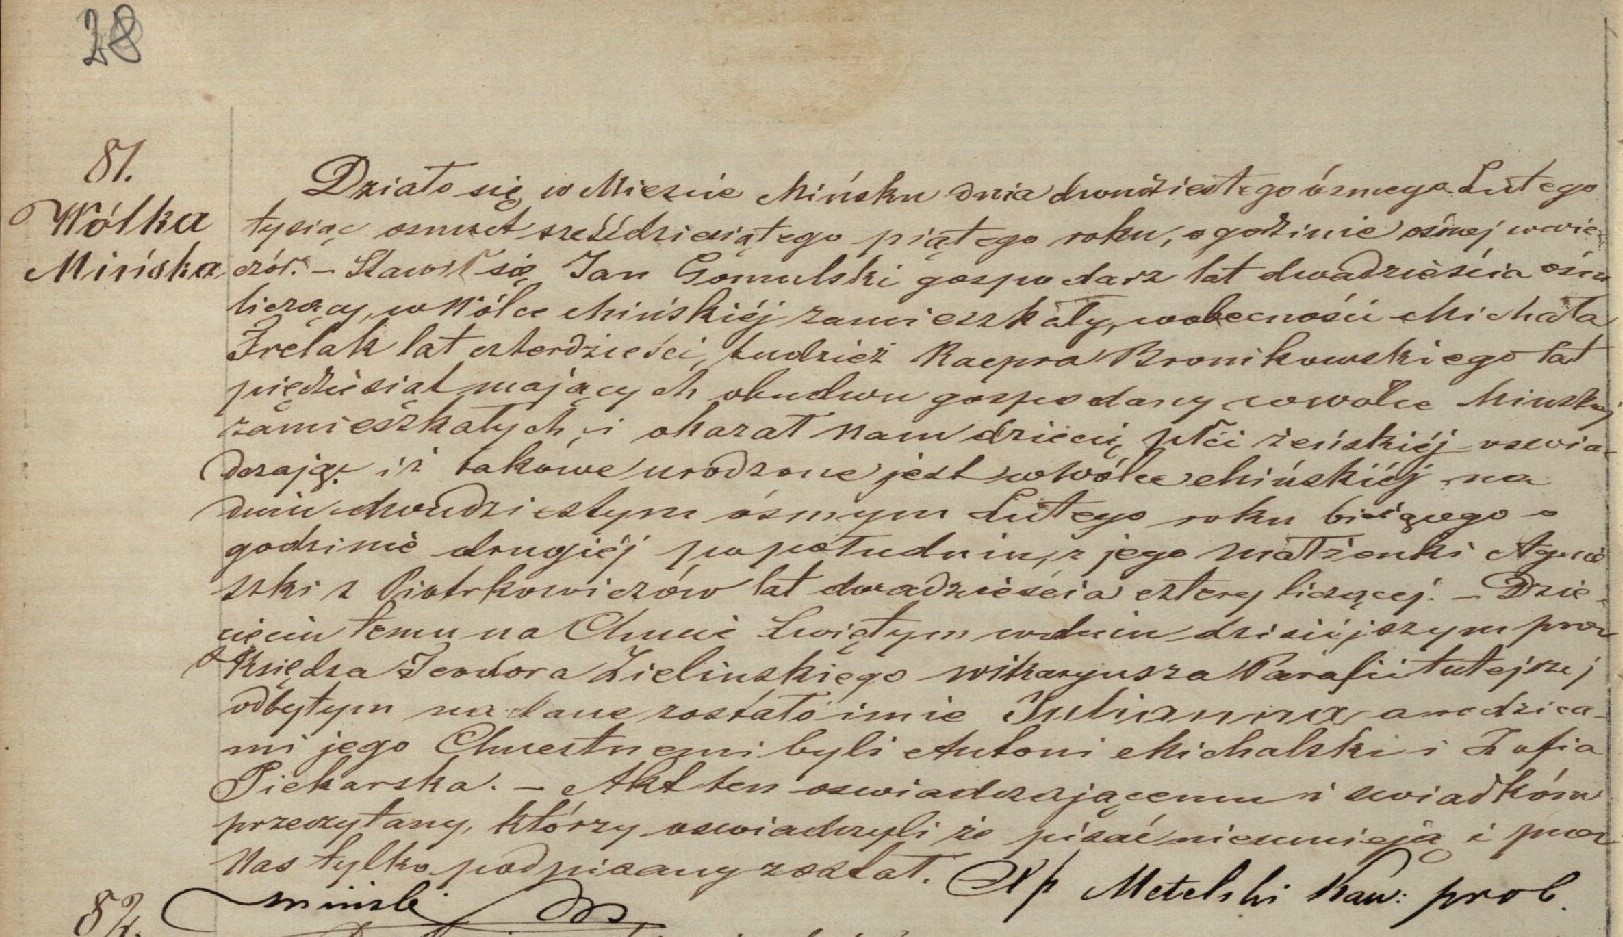 28
81.
Wólka
Mińska
Działo się w Mieście Mińsku dnia dwudziestego ósmego Lutego
tysiąc osmset sześćdziesiątego piątego roku, o godzinie osmej wwie-
czór. – Stawił się Jan Gomulski gospodarz lat dwadzieścia ośm
liczący, w Wólce Mińskiéj zamieszkały, w obecności Michała
Frelak lat czterdzieści, tudzież Kacpra Bronikowskiego lat
pięćdziesiąt mających obudwu gospodarzy w Wolce Minskiej
zamieszkałych, i okazał nam dziecię płci żeńskiéj oswia-
dczając iż takowe urodzone jest w Wólce Mińskiéj na
dniu dwudziestym ósmym Lutego roku bieżącego o
godzinie drugiéj popołudniu, z jego małżonki Agnie
szki z Piotrkowiczów lat dwadzieścia cztery liczącej. – Dzie-
cięciu temu na Chrzcie Świętym w dniu dzisiéjszym przez
Księdza Teodora Zielinskiego wikaryusza Parafii tutejszej
odbytym nadane zostało imie Julianna a rodzica-
mi jego Chrzestnemi byli Antoni Michalski i Zofia
Piekarska. – Akt ten oswiadczającemu i swiadkóm
przeczytany, którzy oswiadczyli że pisać nieumieją i przez
Nas tylko podpisany został. Xp Metelski Kan: prob.
82.
Miński